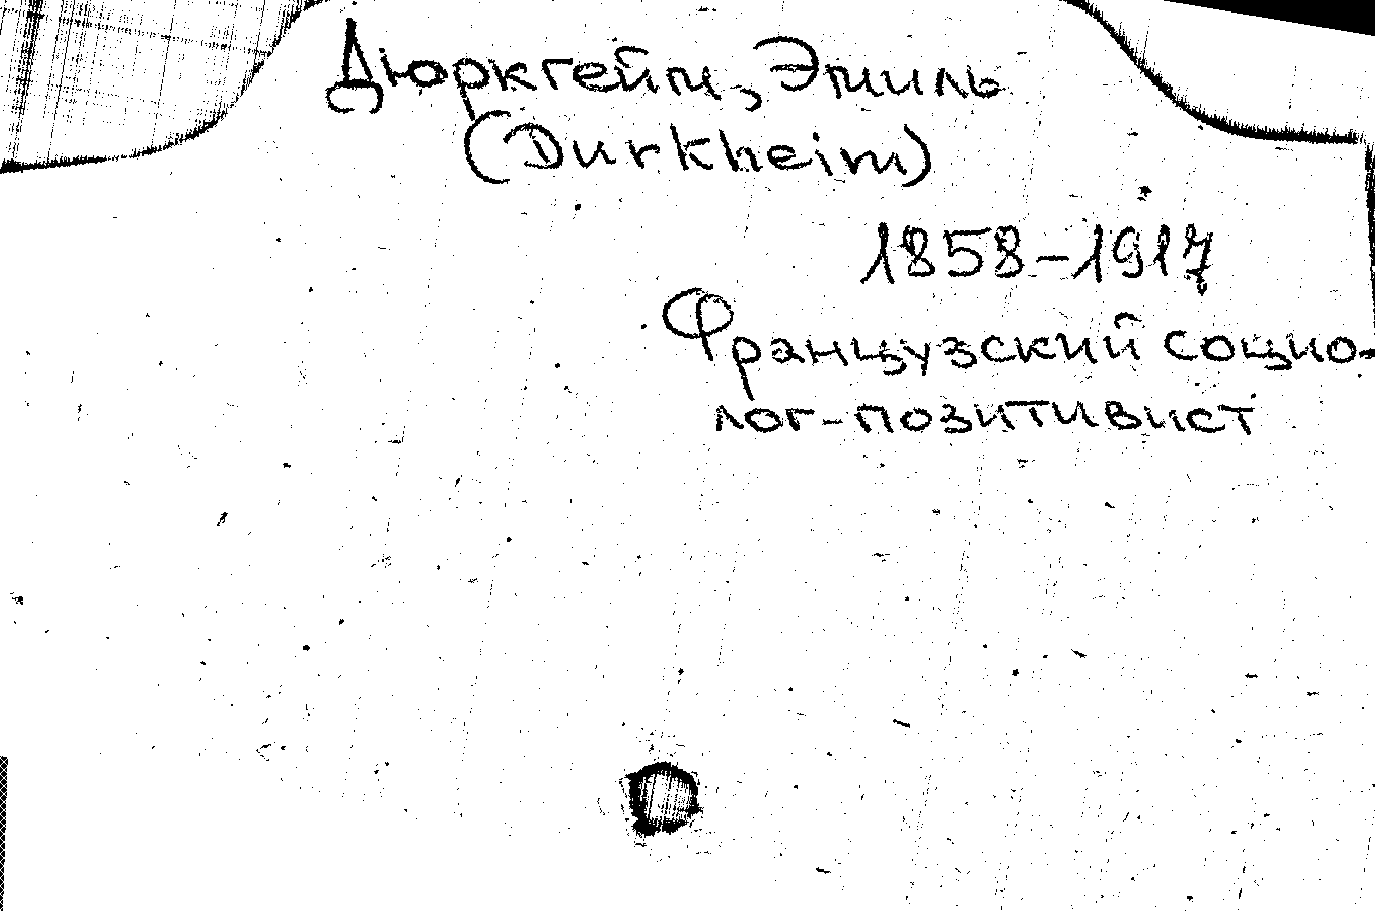 Дюркгейм, Эмиль
(Durkheim)
1858-1917
Французский социо-
лог-позитивист